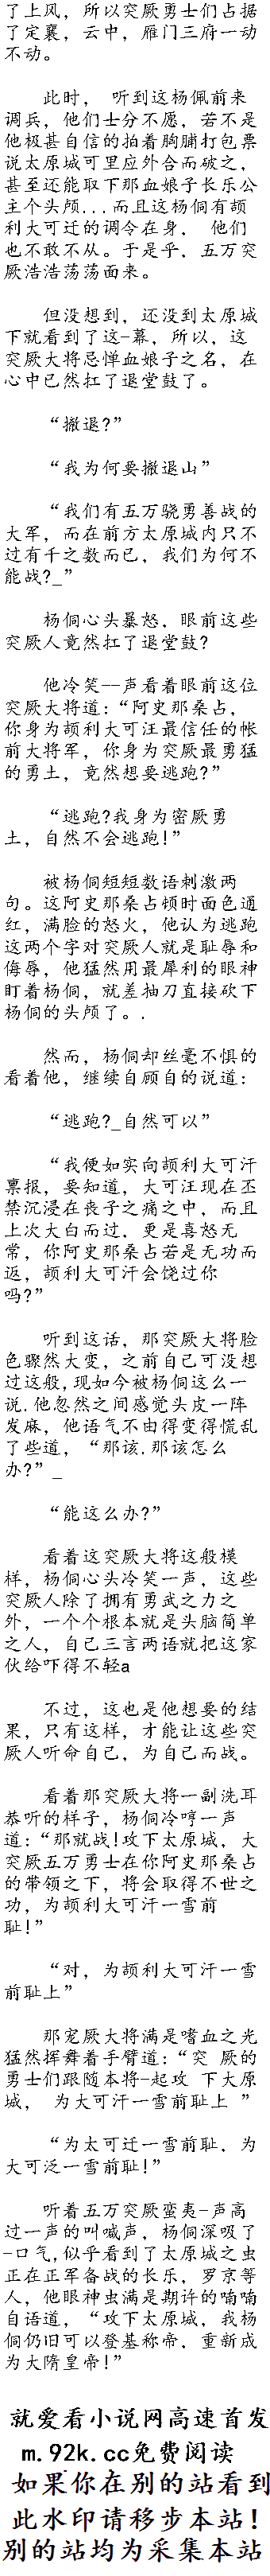 了上风，所以突厥勇士们占据
了定襄，云中，雁门三府一动
不动。
此时， 听到这杨佩前来
调兵，他们士分不愿，若不是
他极甚自信的拍着胸脯打包票
说太原城可里应外合而破之，
甚至还能取下那血娘子长乐公
主个头颅...而且这杨侗有颉
利大可迁的调令在身， 他们
也不敢不从。于是乎，五万突
厥浩浩荡荡面来。
但没想到，还没到太原城
下就看到了这-幕，所以，这
突厥大将忌惮血娘子之名，在
心中已然扛了退堂鼓了。
“撤退?”
“我为何要撤退山”
“我们有五万骁勇善战的
大军，而在前方太原城内只不
过有千之数而已，我们为何不
能战?_”
杨侗心头暴怒，眼前这些
突厥人竟然扛了退堂鼓?
他冷笑--声看着眼前这位
突厥大将道:“阿史那桑占，
你身为颉利大可汪最信任的帐
前大将军，你身为突厥最勇猛
的勇土，竟然想要逃跑?”
“逃跑?我身为密厥勇
土，自然不会逃跑!”
被杨侗短短数语刺激两
句。这阿史那桑占顿时面色通
红，满脸的怒火，他认为逃跑
这两个字对突厥人就是耻辱和
侮辱，他猛然用最犀利的眼神
盯着杨侗，就差抽刀直接砍下
杨侗的头颅了。.
然而，杨侗却丝毫不惧的
看着他，继续自顾自的说道:
“逃跑?_自然可以”
“我便如实向颉利大可汗
禀报，要知道，大可汪现在丕
禁沉浸在丧子之痛之中，而且
上次大白而过，更是喜怒无
常，你阿史那桑占若是无功而
返，颉利大可汗会饶过你
吗?”
听到这话，那突厥大将脸
色骤然大变，之前自己可没想
过这般,现如今被杨侗这么一
说.他忽然之间感觉头皮一阵
发麻，他语气不由得变得慌乱
了些道，“那该.那该怎么
办?”_
“能这么办?”
看着这突厥大将这般模
样，杨侗心头冷笑一声，这些
突厥人除了拥有勇武之力之
外，一个个根本就是头脑简单
之人，自己三言两语就把这家
伙给吓得不轻a
不过，这也是他想要的结
果，只有这样，才能让这些突
厥人听命自己，为自己而战。
看着那突厥大将一副洗耳
恭听的样子，杨侗冷哼一声
道:“那就战!攻下太原城，大
突厥五万勇士在你阿史那桑占
的带领之下，将会取得不世之
功，为颉利大可汗一雪前
耻!”
“对，为颉利大可汗一雪
前耻上”
那宠厥大将满是嗜血之光
猛然挥舞着手臂道:“突 厥的
勇士们跟随本将-起攻 下大原
城， 为大可汗一雪前耻上 ”
“为太可迁一雪前耻．为
大可泛一雪前耻!”
听着五万突厥蛮夷-声高
过一声的叫喊声，杨侗深吸了
-口气,似乎看到了太原城之虫
正在正军备战的长乐，罗京等
人，他眼神虫满是期许的喃喃
自语道，“攻下太原城，我杨
侗仍旧可以登基称帝．重新成
为大隋皇帝!”
就爱看小说网高速首发
m.92k.cc免费阅读
如果你在别的站看到
此水印请移步本站！
别的站均为采集本站